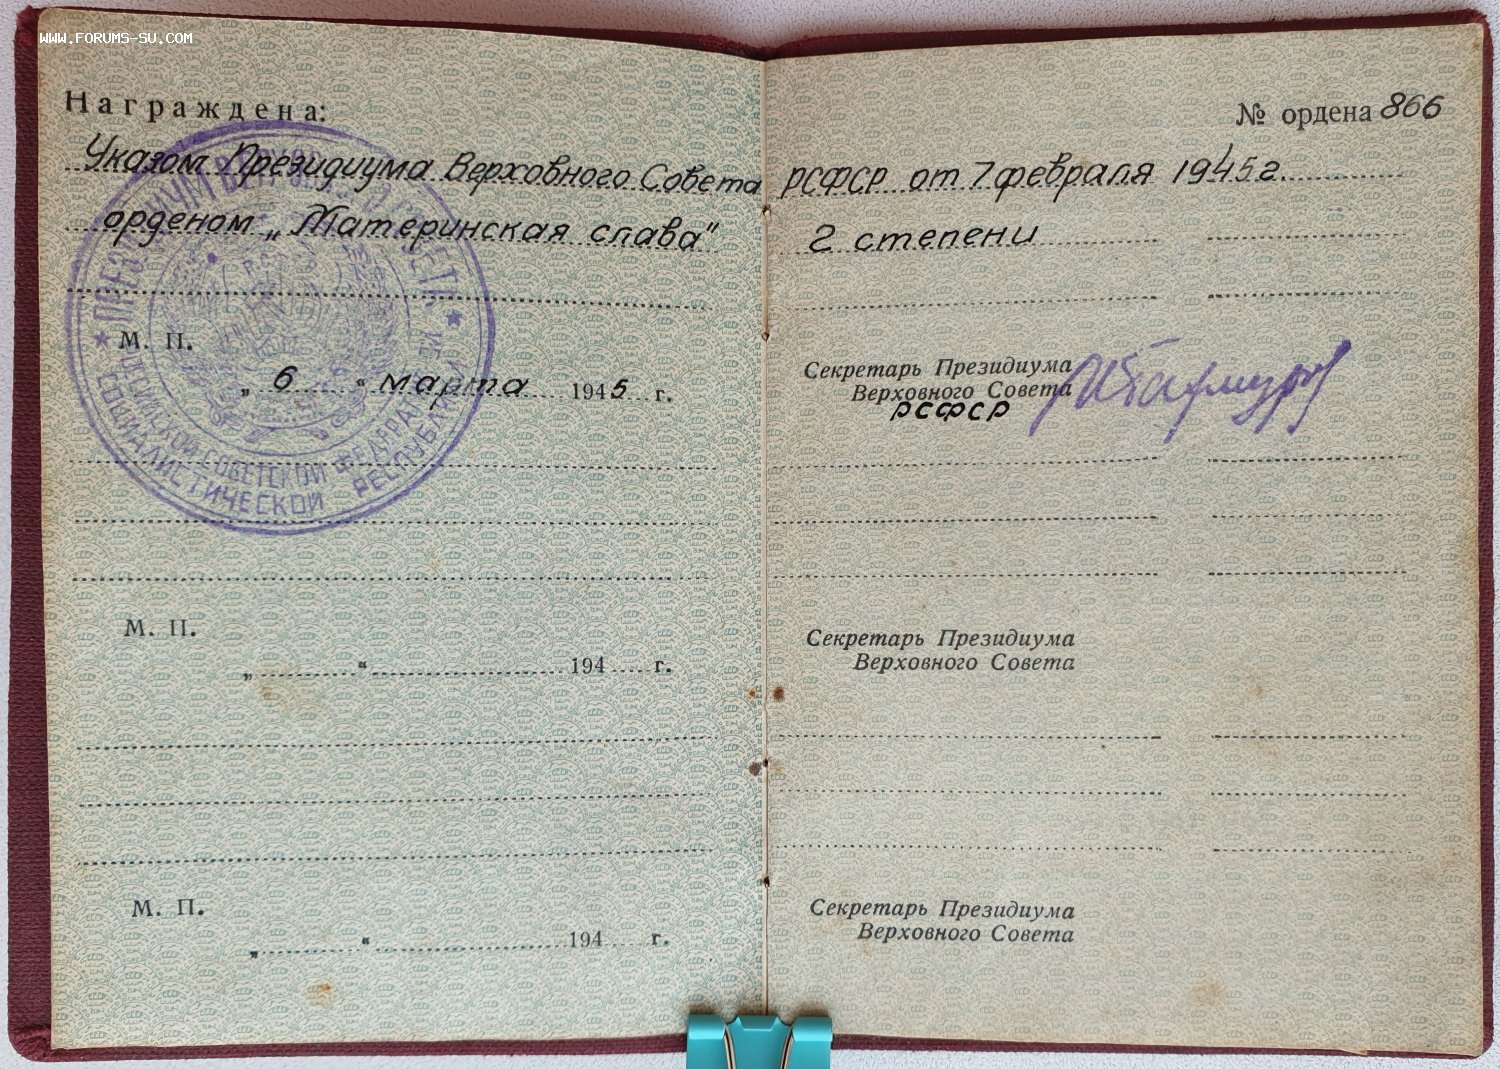 WWW.FORUMS-SU.COM
Награждена:
Указом Президиума Верховного Совета
орденом „Материнская слава"
М. П.
„ 6 “ марта 1945 г.
М. П.
„ “ 194 г.
М. П.
„ “ 194 г.
СОЦИАЛИСТИЧЕСКОЙ РЕСПУБЛИКИ
РОССИЙСКОЙ СОВЕТСКОЙ ФЕДЕРАТИВНОЙ
ПРЕЗИДИУМ ВЕРХОВНОГО СОВЕТА
№ ордена 866
РСФСР от 7 февраля 1945г.
2 степени
Секретарь Президиума
Верховного Совета
РСФСР
Секретарь Президиума
Верховного Совета
Секретарь Президиума
Верховного Совета